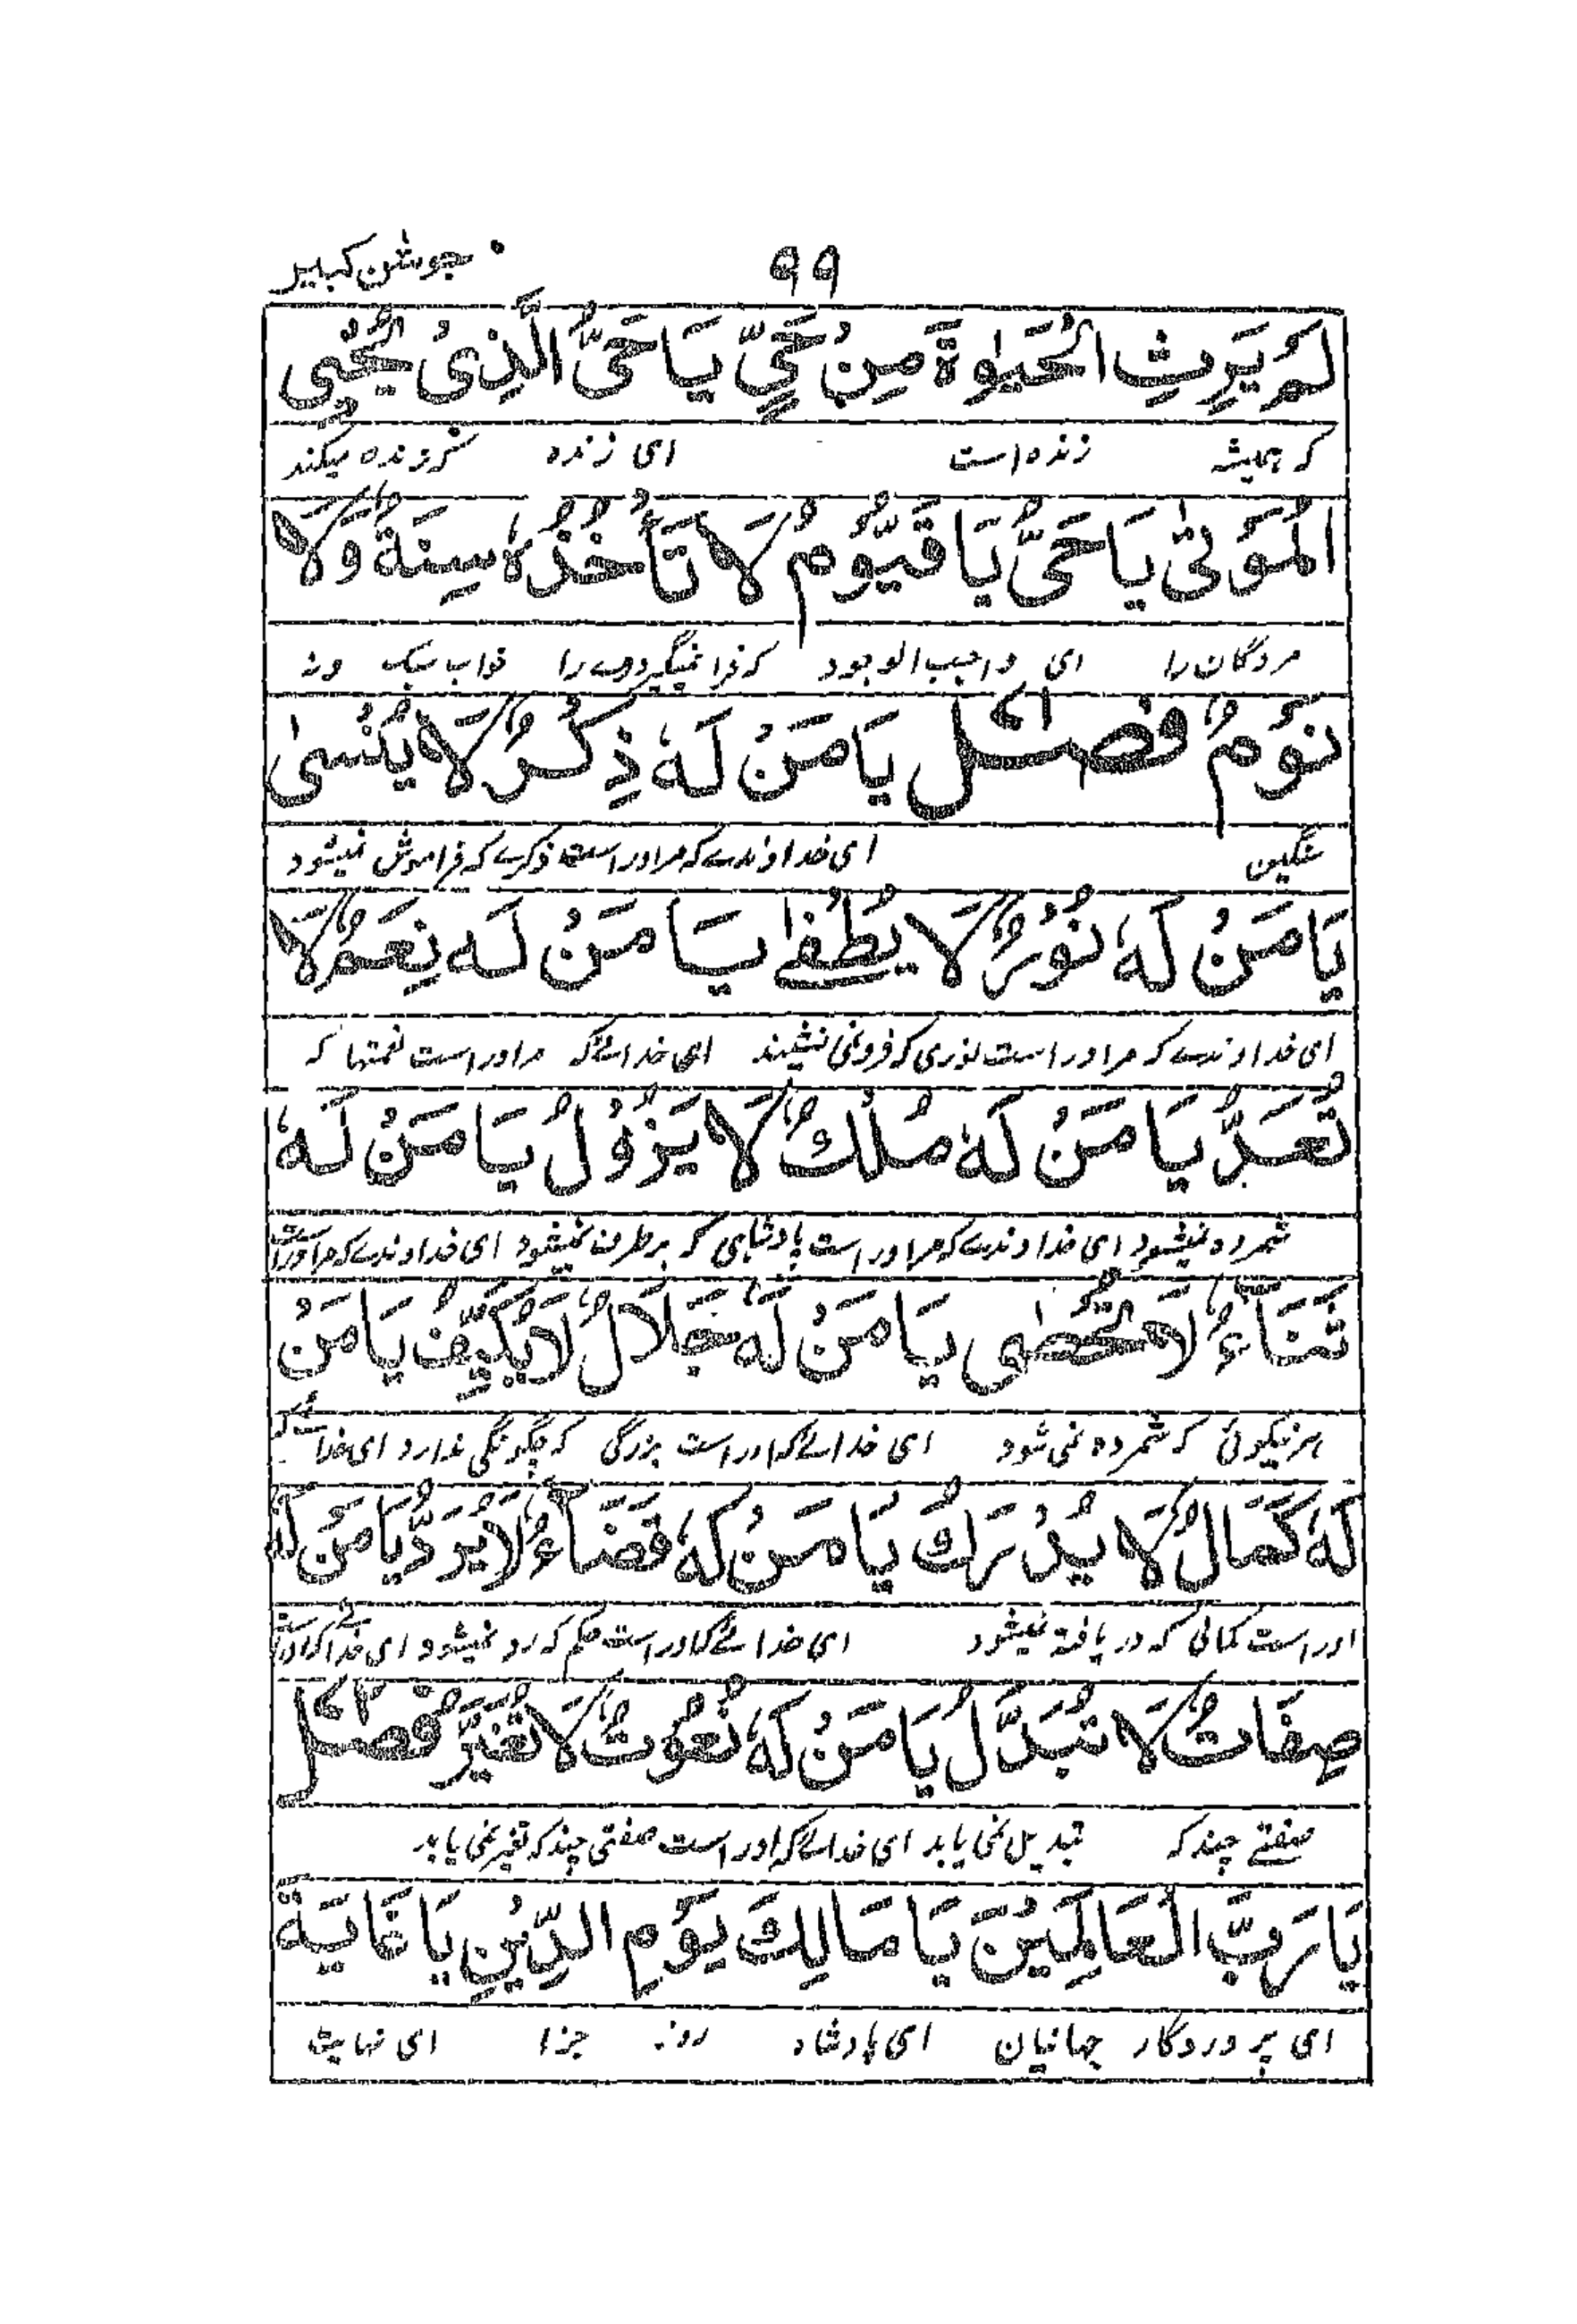 ۹۹ جوشن کبیر
لَمْ یَرِثِ الْحَیٰوةَ مِنْ حَیٍّ یَا حَیُّ الَّذِیْ یُحْیِی
که همیشه زنده است ای زنده که زنده میکند
الْمَوْتٰی یَا حَیُّ یَا قَیُّوْمُ لَا تَأْخُذُهٗ سِنَةٌ وَّلَا
مردگان را ای واجب الوجود که فرا نمیگیرد وے را خواب سبک ونه
نَوْمٌ فصل یَا مَنْ لَهٗ ذِکْرٌ لَا یُنْسٰی
سنگین ای خداوندے که مر اوراست ذکرے که فراموش نمیشود
یَا مَنْ لَهٗ نُوْرٌ لَا یُطْفٰی یَا مَنْ لَه نِعَمٌ لَا
ای خداوندے که مر اوراست نوری که فرو نمی نشیند ای خدائے که مر اوراست نعمتها که
تُعَدُّ یَا مَنْ لَهٗ مُلْكٌ لَا یَزُوْلُ یَا مَنْ لَهٗ
شمرده نمیشود ای خداوندے که مر اوراست پادشاهی که برطرف نمیشود ای خداوندے که مر اوراست
ثَنَاۤءٌ لَا یُحْصٰی یَا مَنْ لَهٗ جَلَالٌ لَا یُکَیَّفُ یَا مَنْ
نیکوئی که شمرده نمی شود ای خدائے که اوراست بزرگی که چگونگی ندارد ای خدائے که
لَهٗ کَمَالٌ لَا یُدْرَكُ یَا مَنْ لَهٗ قَضَاۤءٌ لَا یُرَدُّ یَا مَنْ لَهٗ
اوراست کمالی که دریافته نمیشود ای خدائے که اوراست حکم که رد نمیشود ای خدائے که اوراست
صِفَاتٌ لَا تُبَدَّلُ یَا مَنْ لَهٗ نُعُوْتٌ لَا تُغَیَّرُ فصل
صفتے چند که تبدیل نمی یابد ای خدائے که اوراست صفتی چند که تغیر نمی یابد
یَا رَبَّ الْعَالَمِیْنَ یَا مَالِكَ یَوْمِ الدِّیْنِ یَا غَایَةَ
ای پروردگار جهانیان ای پادشاه روز جزا ای نهایت